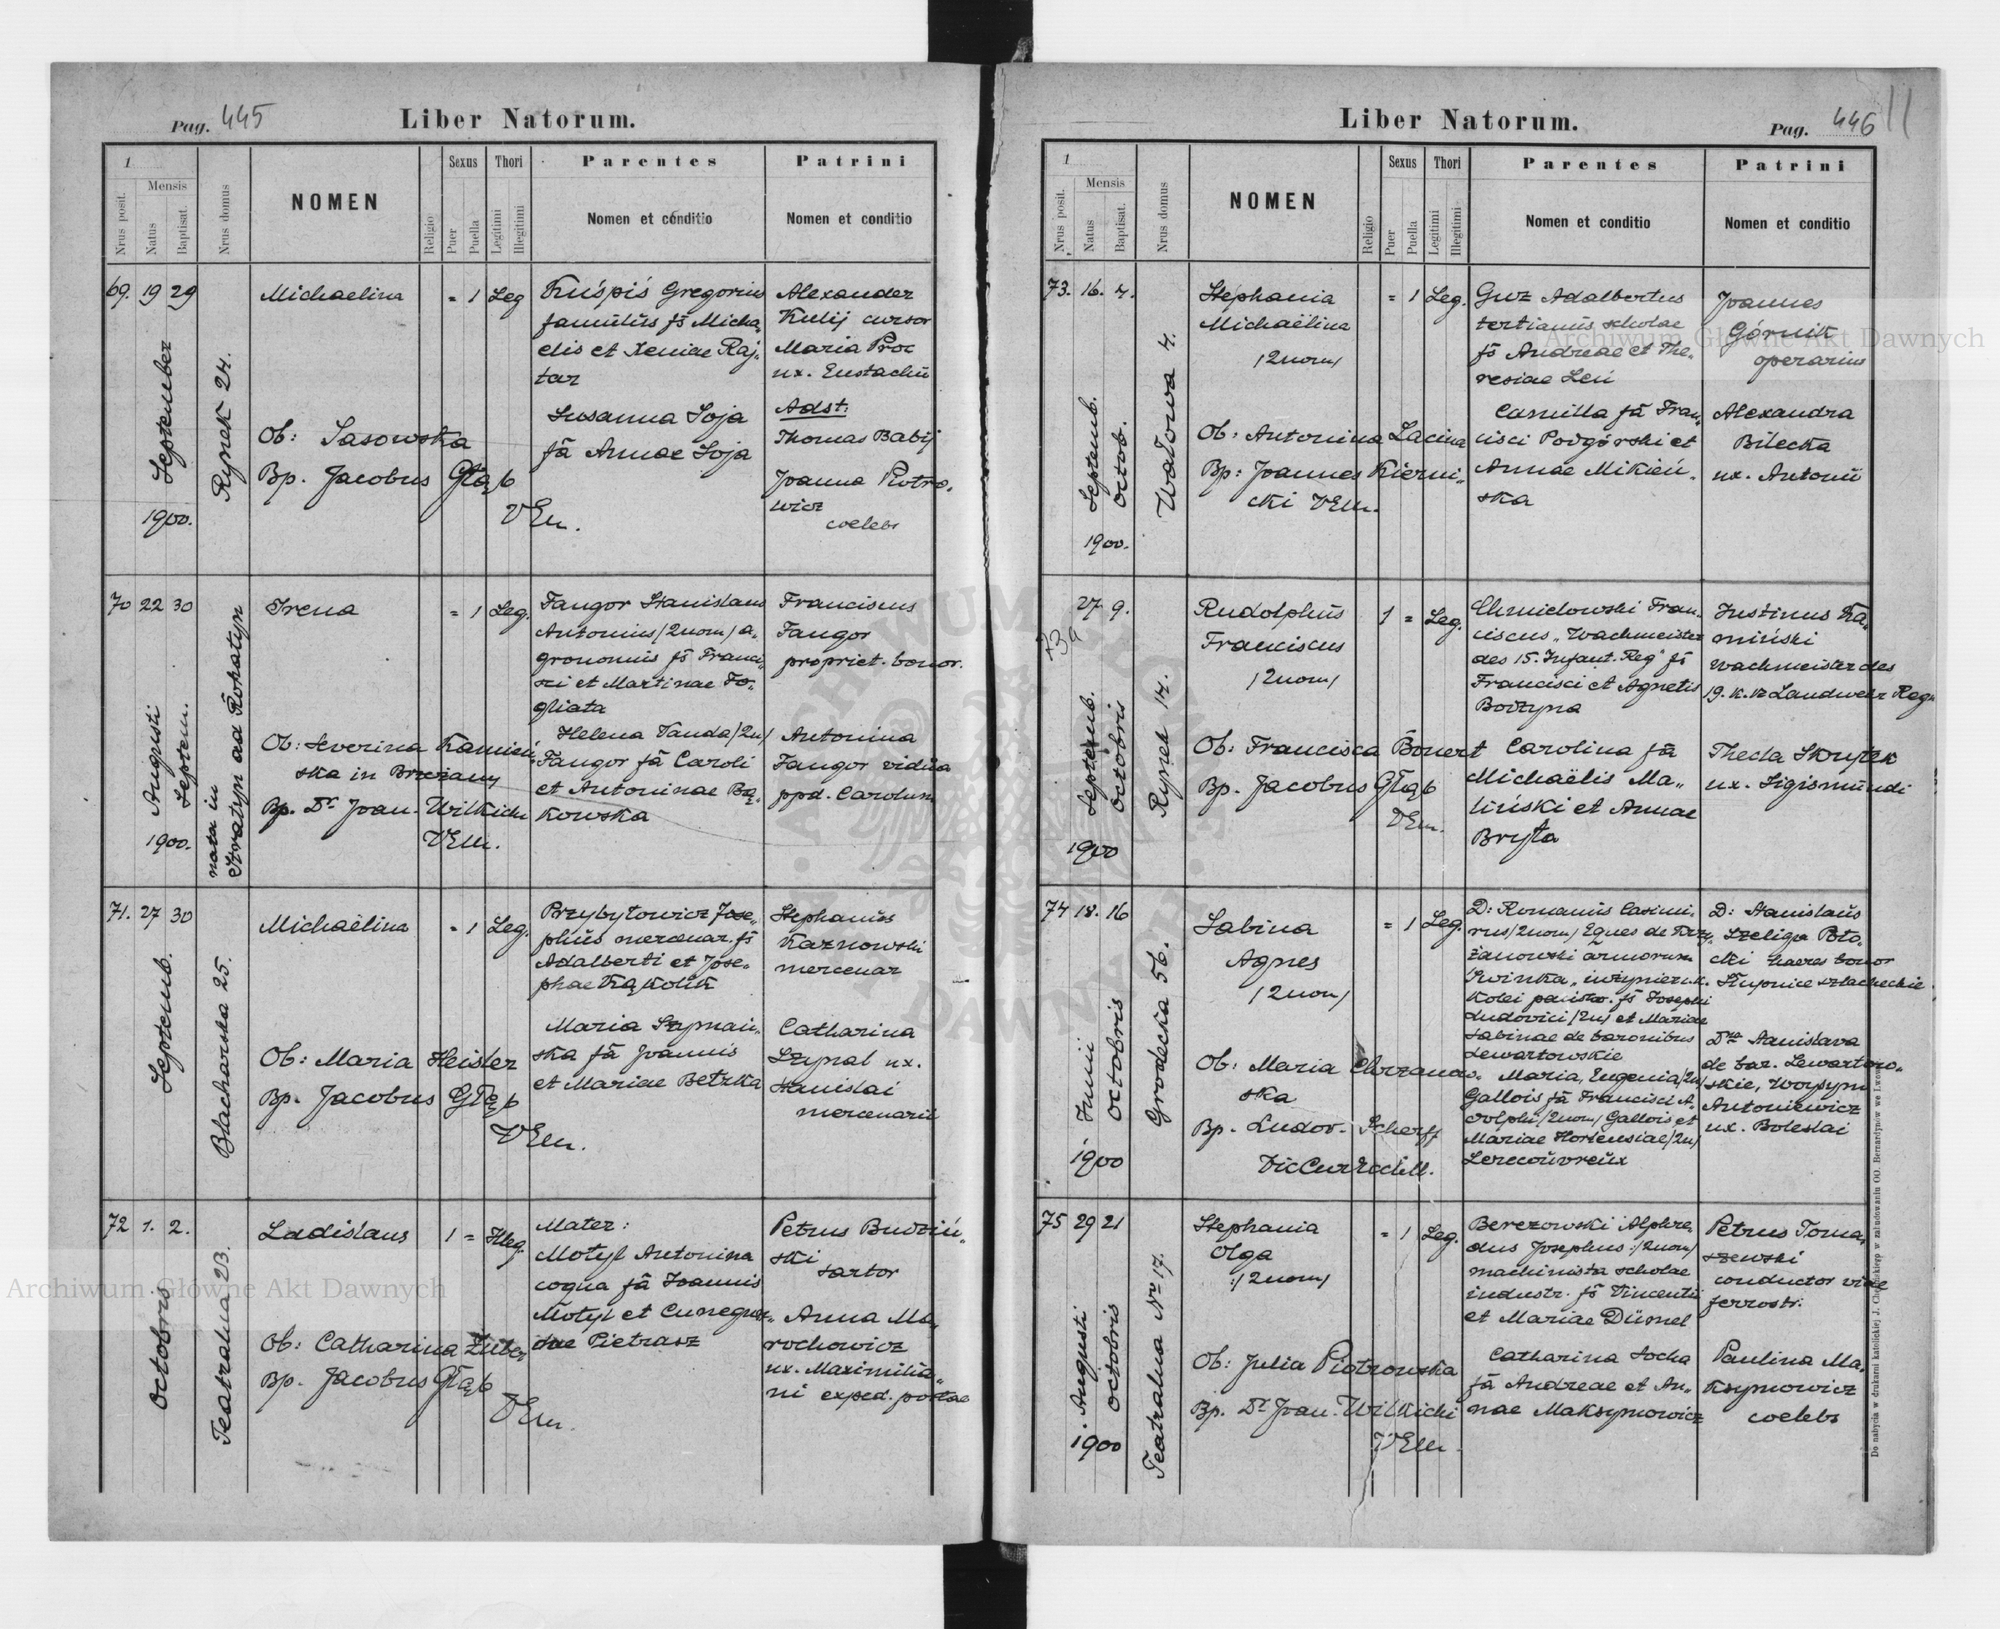 Pag. 445
Liber Natorum.
1
Nrus posit.
Mensis
Natus
Baptisat.
Nrus domus
NOMEN
Religio
Sexus
Puer
Puella
Thori
Legitimi
Illegitimi
Parentes
Nomen et conditio
Patrini
Nomen et conditio
69. 19 29
September
1900.
Rynek 24.
Michaelina
= 1 Leg
Ob: Sasowska
Bp. Jacobus Głąb
VEm.
Kuśpiś Gregorius
famulus fs Micha,
elis et Xeniae Raj,
tar
Susanna Soja
fa Annae Soja
Alexander
Kulij cursor
Maria Proc
ux. Eustachii
Adst:
Thomas Babij
Joanna Piotro,
wicz
coelebs
70 22 30
Augusti
Septem.
1900.
nata in
Stratyn ad Rohatyn
Irena
= 1 Leg.
Ob: Severina Kamień,
ska in Brzeżany
Bp. Dr Joan. Wilkicki
VEm.
Fangor Stanislaus
Antonius /2nom/ a,
gronomus fs Franci,
sci et Martinae Fo,
gliata
Helena Vanda /2n/
Fangor fa Caroli
et Antoninae Bą,
kowska
Franciscus
Fangor
propriet. bonor.
Antonina
Fangor vidua
ppd. Carolum
71. 27 30
Septemb.
Blacharska 25.
Michaëlina
= 1 Leg.
Ob: Maria Heisler
Bp. Jacobus Głąb
VEm.
Przybyłowicz Jose,
phus mercenar. fs
Adalberti et Jose,
phae Kąkolik
Maria Szymań,
ska fa Joannis
et Mariae Betzka
Stephanus
Kaznowski
mercenar
Catharina
Szynal ux.
Stanislai
mercenarii
72 1. 2.
Octobris
Teatralna 23.
Ladislaus
1 = Illeg.
Ob: Catharina
Bp. Jacobus Głąb
VEm.
Mater:
Motyl Antonina
coqua fa Joannis
Motyl et Cunegun,
dae Pietrasz
Petrus Budziń,
ski
sartor
Anna Ma,
rochowicz
ux. Maximilia,
ni exped. postae
Liber Natorum.
Pag. 446
11
1
Nrus posit.
Mensis
Natus
Baptisat.
Nrus domus
NOMEN
Religio
Sexus
Puer
Puella
Thori
Legitimi
Illegitimi
Parentes
Nomen et conditio
Patrini
Nomen et conditio
73. 16. 4.
Septemb.
Octob.
1900.
Wałowa 4.
Stephania
Michaëlina
/2nom/
= 1 Leg.
Ob: Antonina Lacina
Bp: Joannes Kierni,
cki VEm.
Guz Adalbertus
tertianus scholae
fs Andreae et The,
resiae Leń
Camilla fa Fran,
cisci Podgórski et
Annae Mikień,
ska
Joannes
Górnik
operarius
Alexandra
Bilecka
ux. Antonii
73a
27 9.
Septemb.
Octobris
1900
Rynek 14.
Rudolphus
Franciscus
/2nom/
1 = Leg.
Ob: Francisca
Bp. Jacobus Głąb
VEm.
Chmielowski Fran,
ciscus, Wachmeister
des 15. Infant. Reg. fs
Francisci et Agnetis
Carolina fa
Michaëlis Ma,
liński et Annae
Bryła
Justinus Ka,
miński
Wachmeister des
19. k.k. Landwehr Reg.
Thecla
ux. Sigismundi
74 18. 16
Junii
Octobris
1900
Grodecka 56.
Sabina
Agnes
/2nom/
= 1 Leg.
Ob: Maria Chrzanow,
ska
Bp. Ludov. Scherff
D: Romanus Casimi,
rus /2nom/ Eques de
armorum
kolei państw. fs Josephi
Ludovici /2n/ et Mariae
Sabinae de baronibus
Lewartowskie
Maria, Eugenia /2n/
Gallois fa Francisci A,
dolphi /2nom/ Gallois et
Mariae Hortensiae /2n/
Lerecouvreux
D: Stanislaus
Szeliga Poto,
cki haeres bonor
Słupnice szlacheckie
Dna Stanislava
de bar. Lewartow,
skie,
Antoniewicz
ux. Boleslai
75 29 21
Augusti
Octobris
1900
Teatralna Nr 17.
Stephania
Olga
:/2nom/
= 1 Leg.
Ob: Julia Piotrowska
Bp. Dr Joan. Wilkicki
VEm.
Berezowski Alphre,
dus Josephus :/2nom/
machinista scholae
industr. fs Vincentii
et Mariae Dümel
Catharina Socha
fa Andreae et An,
nae Maksymowicz
Petrus Toma,
szewski
conductor viae
ferrostr.
Paulina Ma,
ksymowicz
coelebs
Archiwum Główne Akt Dawnych
Archiwum Główne Akt Dawnych